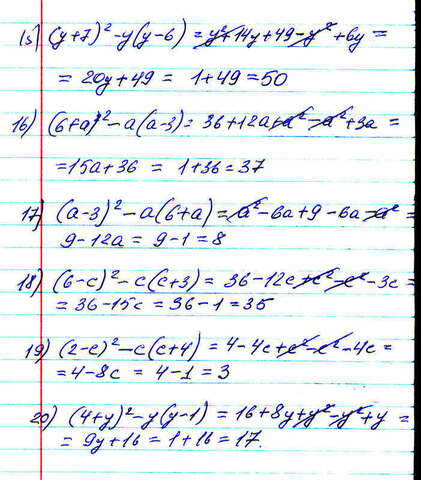 15) (y+7)²-y(y-6) = y²+14y+49-y²+6y=
= 20y+49 = 1+49=50
16) (6+a)²-a(a-3)= 36+12a+a²-a²+3a =
=15a+36 = 1+36=37
17) (a-3)²-a(6+a)=a²-6a+9-6a-a² =
9-12a = 9-1=8
18) (6-c)²-c(c+3) = 36-12c+c²-c²-3c =
= 36-15c = 36-1=35
19) (2-c)²-c(c+4) = 4-4c+c²-c²-4c =
=4-8c = 4-1=3
20) (4+y)²-y(y-1) = 16+8y+y²-y²+y =
= 9y+16 = 1+16=17.